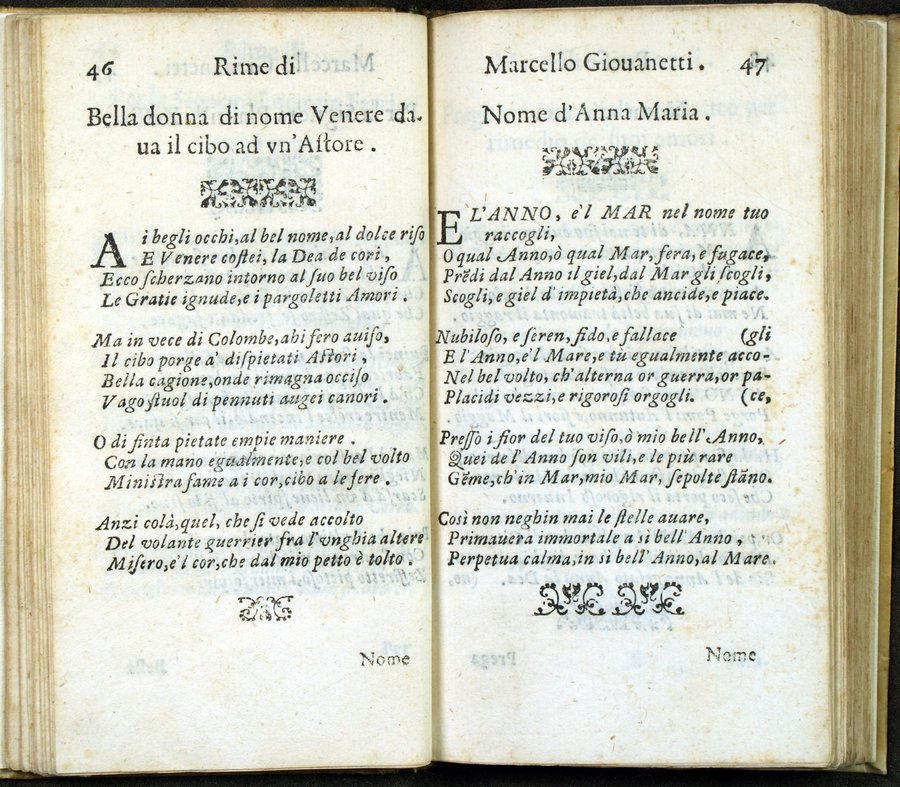 46 Rime di
Bella donna di nome Venere da-
ua il cibo ad vn'Aſtore.
Ai begli occhi, al bel nome, al dolce riſo
E Venere coſtei, la Dea de cori,
Ecco ſcherzano intorno al ſuo bel viſo
Le Gratie ignude, e i pargoletti Amori.
Ma in vece di Colombe, ahi fero auiſo,
Il cibo porge a' diſpietati Aſtori,
Bella cagione, onde rimagna occiſo
Vago ſtuol di pennuti augei canori.
O di finta pietate empie maniere.
Con la mano egualmente, e col bel volto
Miniſtra fame a i cor, cibo a le fere.
Anzi colà, quel, che ſi vede accolto
Del volante guerrier fra l'vnghia altere
Miſero, e'l cor, che dal mio petto è tolto.
Nome
Marcello Giouanetti. 47
Nome d'Anna Maria.
E L'ANNO, e'l MAR nel nome tuo
raccogli,
O qual Anno, ò qual Mar, fera, e fugace,
Prẽdi dal Anno il giel, dal Mar gli ſcogli,
Scogli, e giel d'impietà, che ancide, e piace.
Nubiloſo, e ſeren, fido, e fallace (gli
E l'Anno, e'l Mare, e tù egualmente acco-
Nel bel volto, ch'alterna or guerra, or pa-
Placidi vezzi, e rigoroſi orgogli. (ce,
Preſſo i fior del tuo viſo, ò mio bell'Anno,
Quei de l'Anno ſon vili, e le più rare
Gẽme, ch'in Mar, mio Mar, ſepolte ſtãno.
Così non neghin mai le ſtelle auare,
Primauera immortale a sì bell'Anno,
Perpetua calma, in sì bell'Anno, al Mare.
Nome